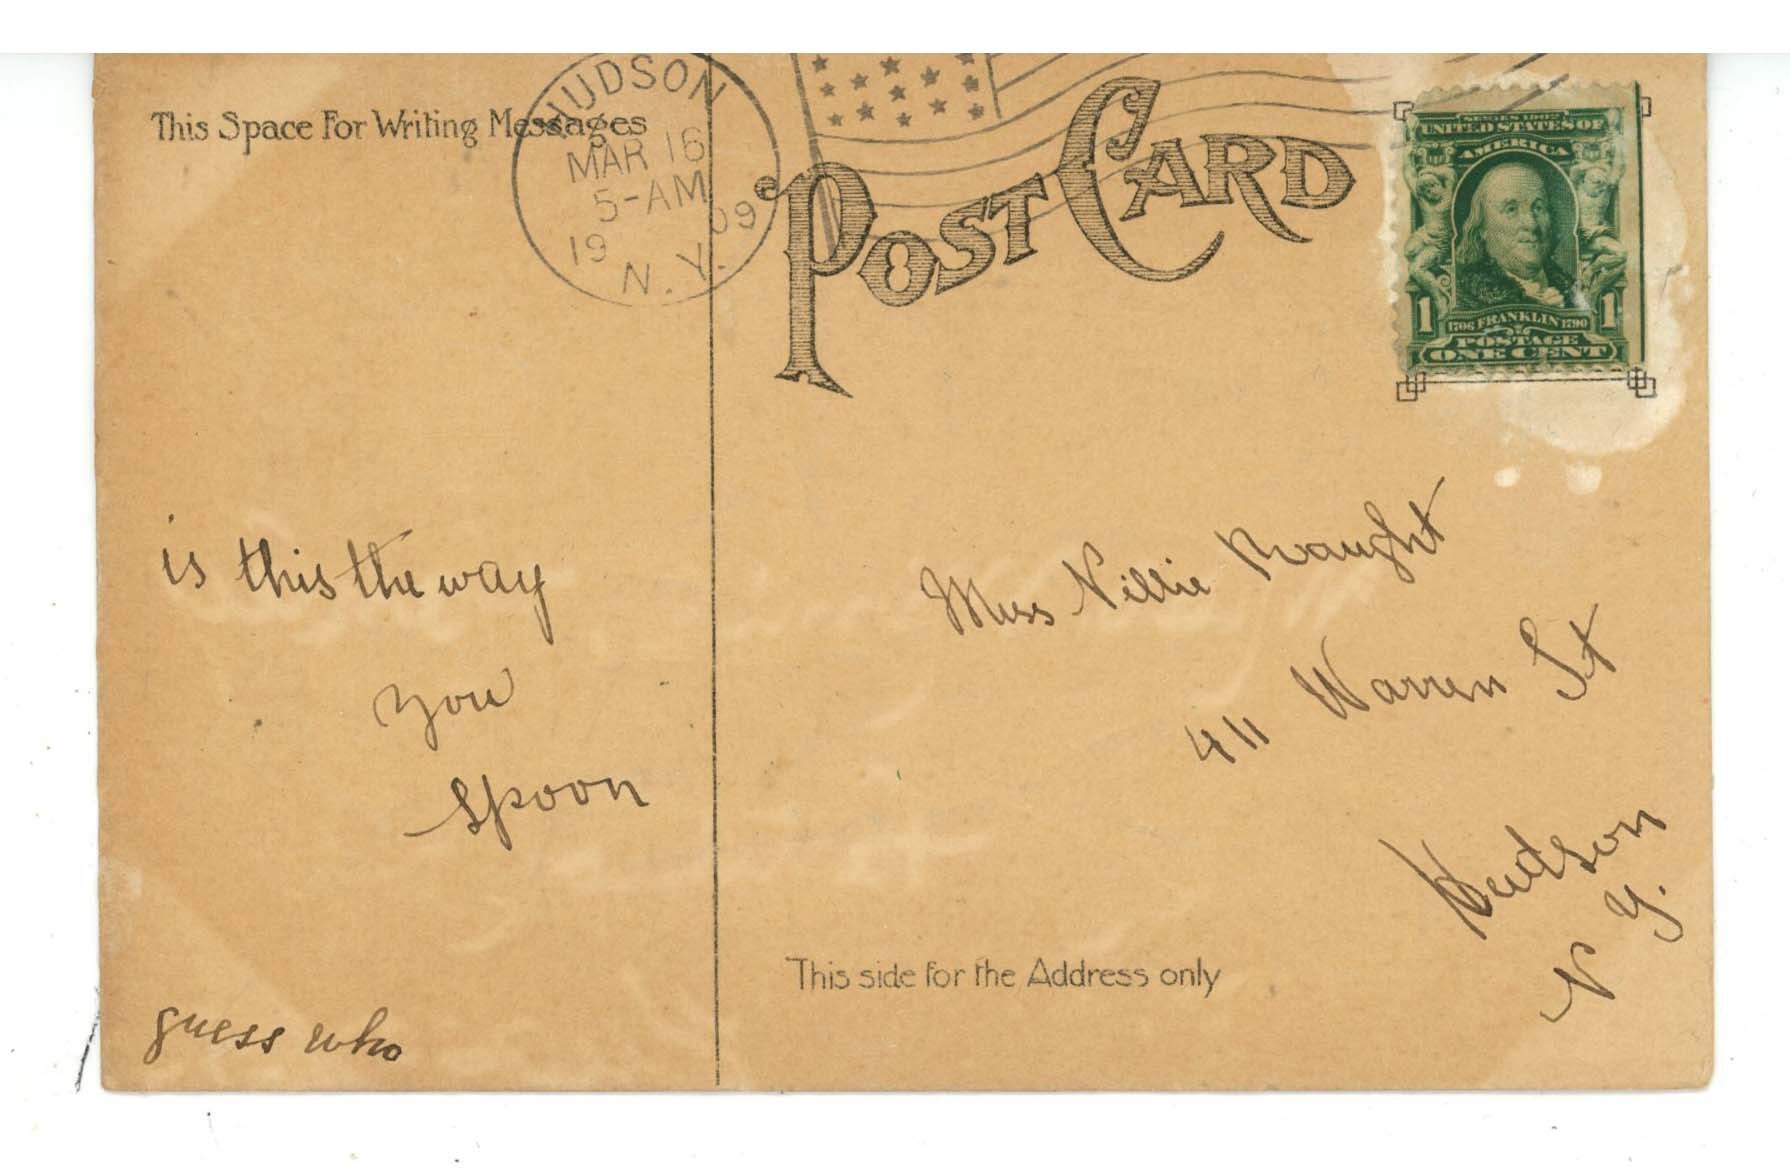 This Space For Writing Messages
HUDSON
MAR 16
5-AM
19 09
N.Y.
POST CARD
SERIES 1902
UNITED STATES OF
AMERICA
1 1706 FRANKLIN 1790 1
POSTAGE
ONE CENT
is this the way
you
spoon
guess who
Miss Nillie
411 Warren St
Hudson
N Y.
This side for the Address only